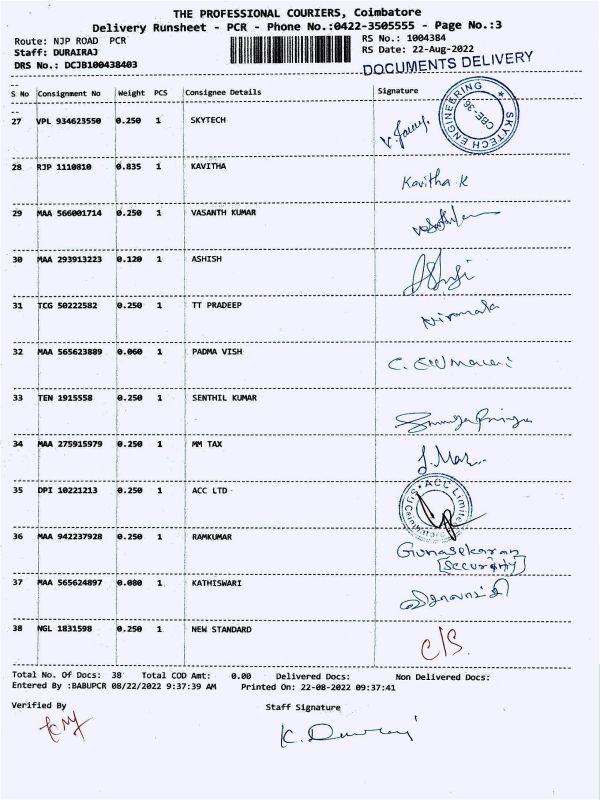 THE PROFESSIONAL COURIERS, Coimbatore
Delivery Runsheet - PCR - Phone No.:0422-3505555 - Page No.:3
Route: NJP ROAD PCR RS No.: 1004384
Staff: DURAIRAJ RS Date: 22-Aug-2022
DRS No.: DCJB100438403 DOCUMENTS DELIVERY
S No Consignment No Weight PCS Consignee Details Signature
27 VPL 934623550 0.250 1 SKYTECH
SKYTECH ENGINEERING
CBE-36
28 RJP 1110810 0.835 1 KAVITHA
Kavitha.K
29 MAA 566001714 0.250 1 VASANTH KUMAR
30 MAA 293913223 0.120 1 ASHISH
31 TCG 50222582 0.250 1 TT PRADEEP
Nirmala
32 MAA 565623889 0.060 1 PADMA VISH
33 TEN 1915558 0.250 1 SENTHIL KUMAR
34 MAA 275915979 0.250 1 MM TAX
35 DPI 10221213 0.250 1 ACC LTD
ACC Limited
36 MAA 942237928 0.250 1 RAMKUMAR
Gunasekaran
[Security]
37 MAA 565624897 0.080 1 KATHISWARI
38 NGL 1831598 0.250 1 NEW STANDARD
C/S.
Total No. Of Docs: 38 Total COD Amt: 0.00 Delivered Docs: Non Delivered Docs:
Entered By :BABUPCR 08/22/2022 9:37:39 AM Printed On: 22-08-2022 09:37:41
Verified By Staff Signature